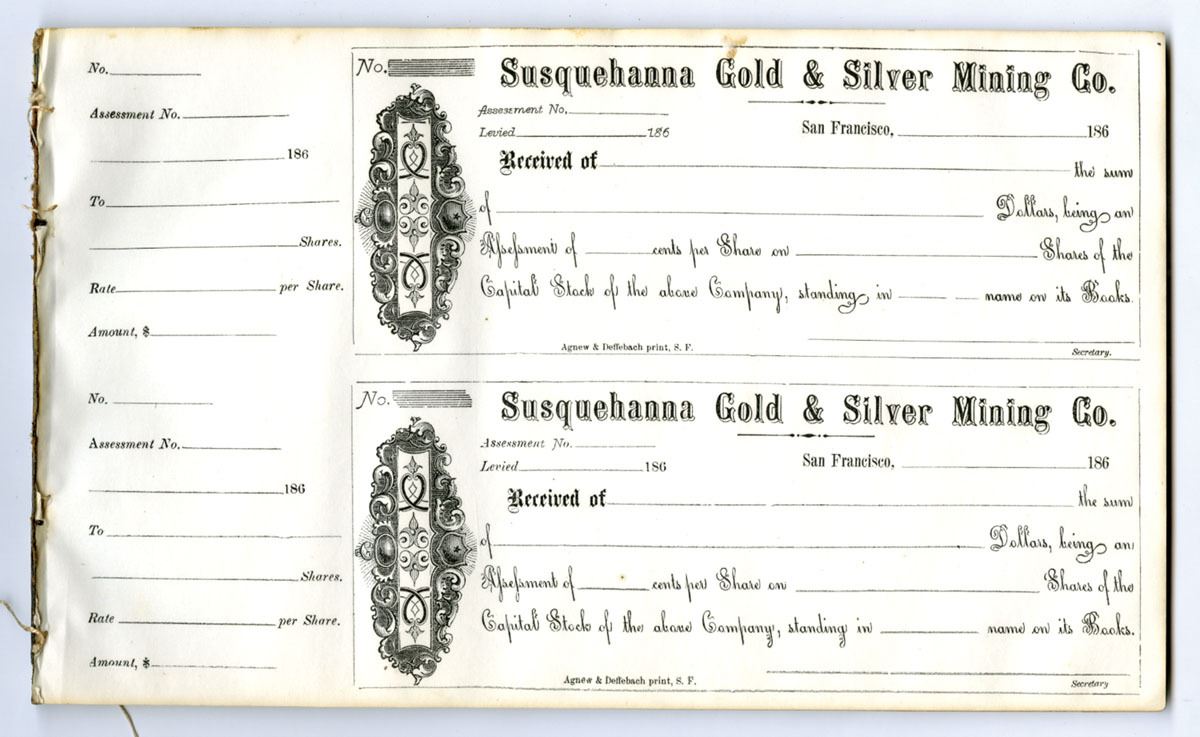 No.
Assessment No.
186
To
Shares.
Rate per Share.
Amount, $
No.
Susquehanna Gold & Silver Mining Co.
Assessment No.
Levied 186 San Francisco, 186
Received of the sum
of Dollars, being an
Assessment of cents per Share on Shares of the
Capital Stock of the above Company, standing in name on its Books.
Agnew & Deffebach print, S. F. Secretary.
No.
Assessment No.
186
To
Shares.
Rate per Share.
Amount, $
No.
Susquehanna Gold & Silver Mining Co.
Assessment No.
Levied 186 San Francisco, 186
Received of the sum
of Dollars, being an
Assessment of cents per Share on Shares of the
Capital Stock of the above Company, standing in name on its Books.
Agnew & Deffebach print, S. F. Secretary